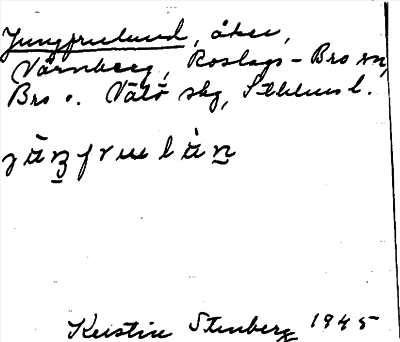 Jungfrulund, åker,
Värnberg, Roslags-Bro sn,
Bro o. Vätö skg, Sthlms l.
Kerstin Stenberg 1945